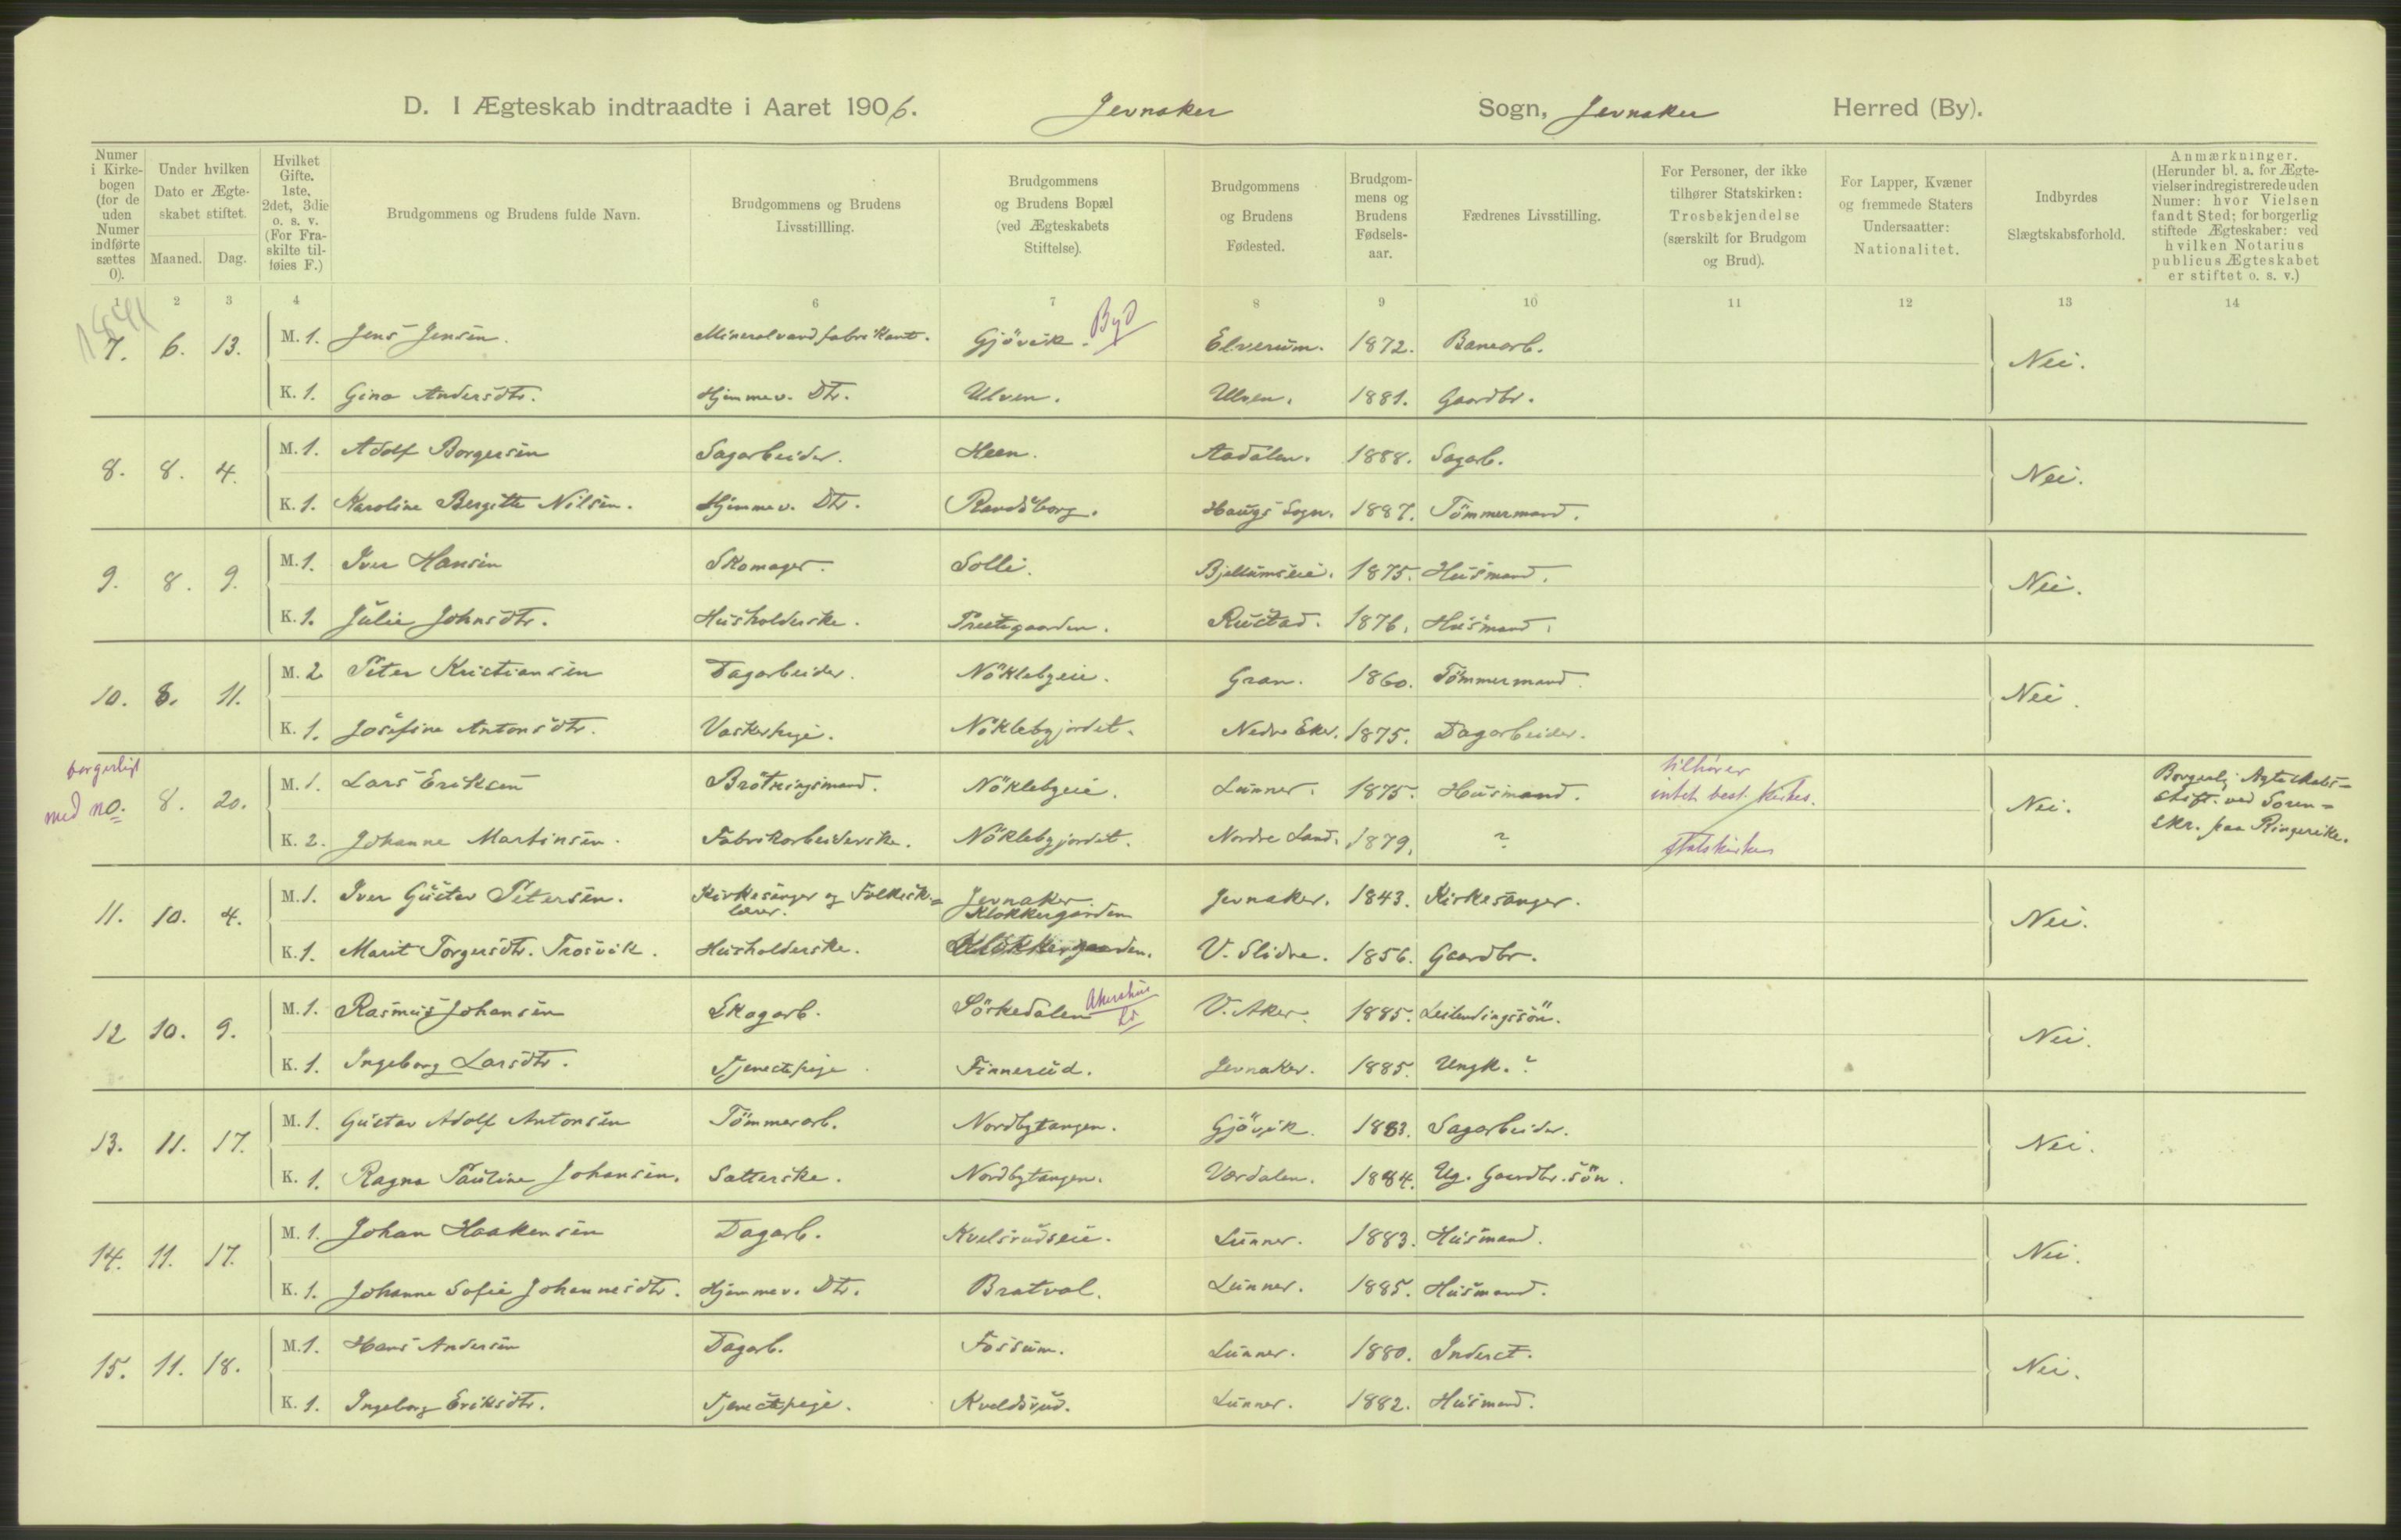 D. I Ægteskab indtraadte i Aaret 1906. Jevnaker Sogn, Jevnaker Herred (By).
Numer i Kirkebogen (for de uden Numer indførte sættes 0).
Under hvilken Dato er Ægteskabet stiftet.
Maaned. Dag.
Hvilket Gifte. 1ste, 2det, 3die o. s. v. (For Fraskilte tilføies F.)
Brudgommens og Brudens fulde Navn.
Brudgommens og Brudens Livsstillling.
Brudgommens og Brudens Bopæl (ved Ægteskabets Stiftelse).
Brudgommens og Brudens Fødested.
Brudgommens og Brudens Fødselsaar.
Fædrenes Livsstilling.
For Personer, der ikke tilhører Statskirken: Trosbekjendelse (særskilt for Brudgom og Brud).
For Lapper, Kvæner og fremmede Staters Undersaatter: Nationalitet.
Indbyrdes Slægtskabsforhold.
Anmærkninger. (Herunder bl. a. for Ægtevielser indregistrerede uden Numer: hvor Vielsen fandt Sted; for borgerlig stiftede Ægteskaber: ved hvilken Notarius publicus Ægteskabet er stiftet o. s. v.)
1 2 3 4 6 7 8 9 10 11 12 13 14
7. 6. 13. M. 1. Jens Jensen. Mineralvandfabrikant. Gjövik. Byd Elverum. 1872. Banearb. Nei.
K. 1. Gina Andersdtr. Hjemmev. Dtr. Ulven. Ulven. 1881. Gaardbr.
8. 8. 4. M. 1. Adolf Borgersen Sagarbeider. Heen. Aadalen. 1888. Sagarb. Nei.
K. 1. Karoline Bergitte Nilsen. Hjemmev. Dtr. Randsborg. Haugs Sogn. 1887. Tömmermand.
9. 8. 9. M. 1. Iver Hansen Skomager. Solli. Bjellumseie. 1875. Husmand. Nei.
K. 1. Julie Johnsdtr. Husholderske. Prestegaarden. Rustad. 1876. Husmand.
10. 8. 11. M. 2 Peter Kristiansen Dagarbeider. Nöklebyeie. Gran. 1860. Tömmermand. Nei.
K. 1. Josefine Antonsdtr. Vaskerpige. Nöklebyjordet. Nedre Eker. 1875. Dagarbeider.
borgerligt
med no. 8. 20. M. 1. Lars Eriksen Brötningsmand. Nöklebyeie. Lunner. 1875. Husmand. tilhører intet best. Kirkes. Nei. Borgerlig Ægteskabs-
stift. ved Soren-
skr. paa Ringerike.
K. 2. Johanne Martinsen. Fabrikarbeiderske. Nöklebyjordet. Nordre Land. 1879. ? statskirken
11. 10. 4. M. 1. Iver Gustav Petersen. Kirkesanger og Folkesk.=lærer. Jevnaker Klokkergarden Jevnaker. 1843. Kirkesanger. Nei.
K. 1. Marit Torgersdtr. Trosvik. Husholderske. Klokkergaarden. V. Slidre. 1856. Gaardbr.
12 10. 9. M. 1. Rasmus Johansen Skogarb. Sörkedalen Akershus V. Aker. 1885. Leilendingssön. Nei.
K. 1. Ingeborg Larsdtr. Tjenestpige Finnerud. Jevnaker. 1885. Ungk. ?
13. 11. 17. M. 1. Gustav Adolf Antonsen Tömmerarb. Nordbytangen. Gjövik. 1883. Sagarbeider. Nei.
K. 1. Ragna Pauline Johansen. Satterske. Nordbytangen. Værdalen. 1884. Ug. Gaardbr. sön.
14. 11. 17. M. 1. Johan Haakensen Dagarb. Kvelsrudseie. Lunner. 1883. Husmand. Nei.
K. 1. Johanne Sofie Johannesdtr. Hjemmev. Dtr. Bratval. Lunner. 1885. Husmand.
15. 11. 18. M. 1. Hans Andersen Dagarb. Fossum. Lunner. 1880. Inderst. Nei.
K. 1. Ingeborg Eriksdtr. Tjenestpige. Kveldsrud. Lunner. 1882. Husmand.